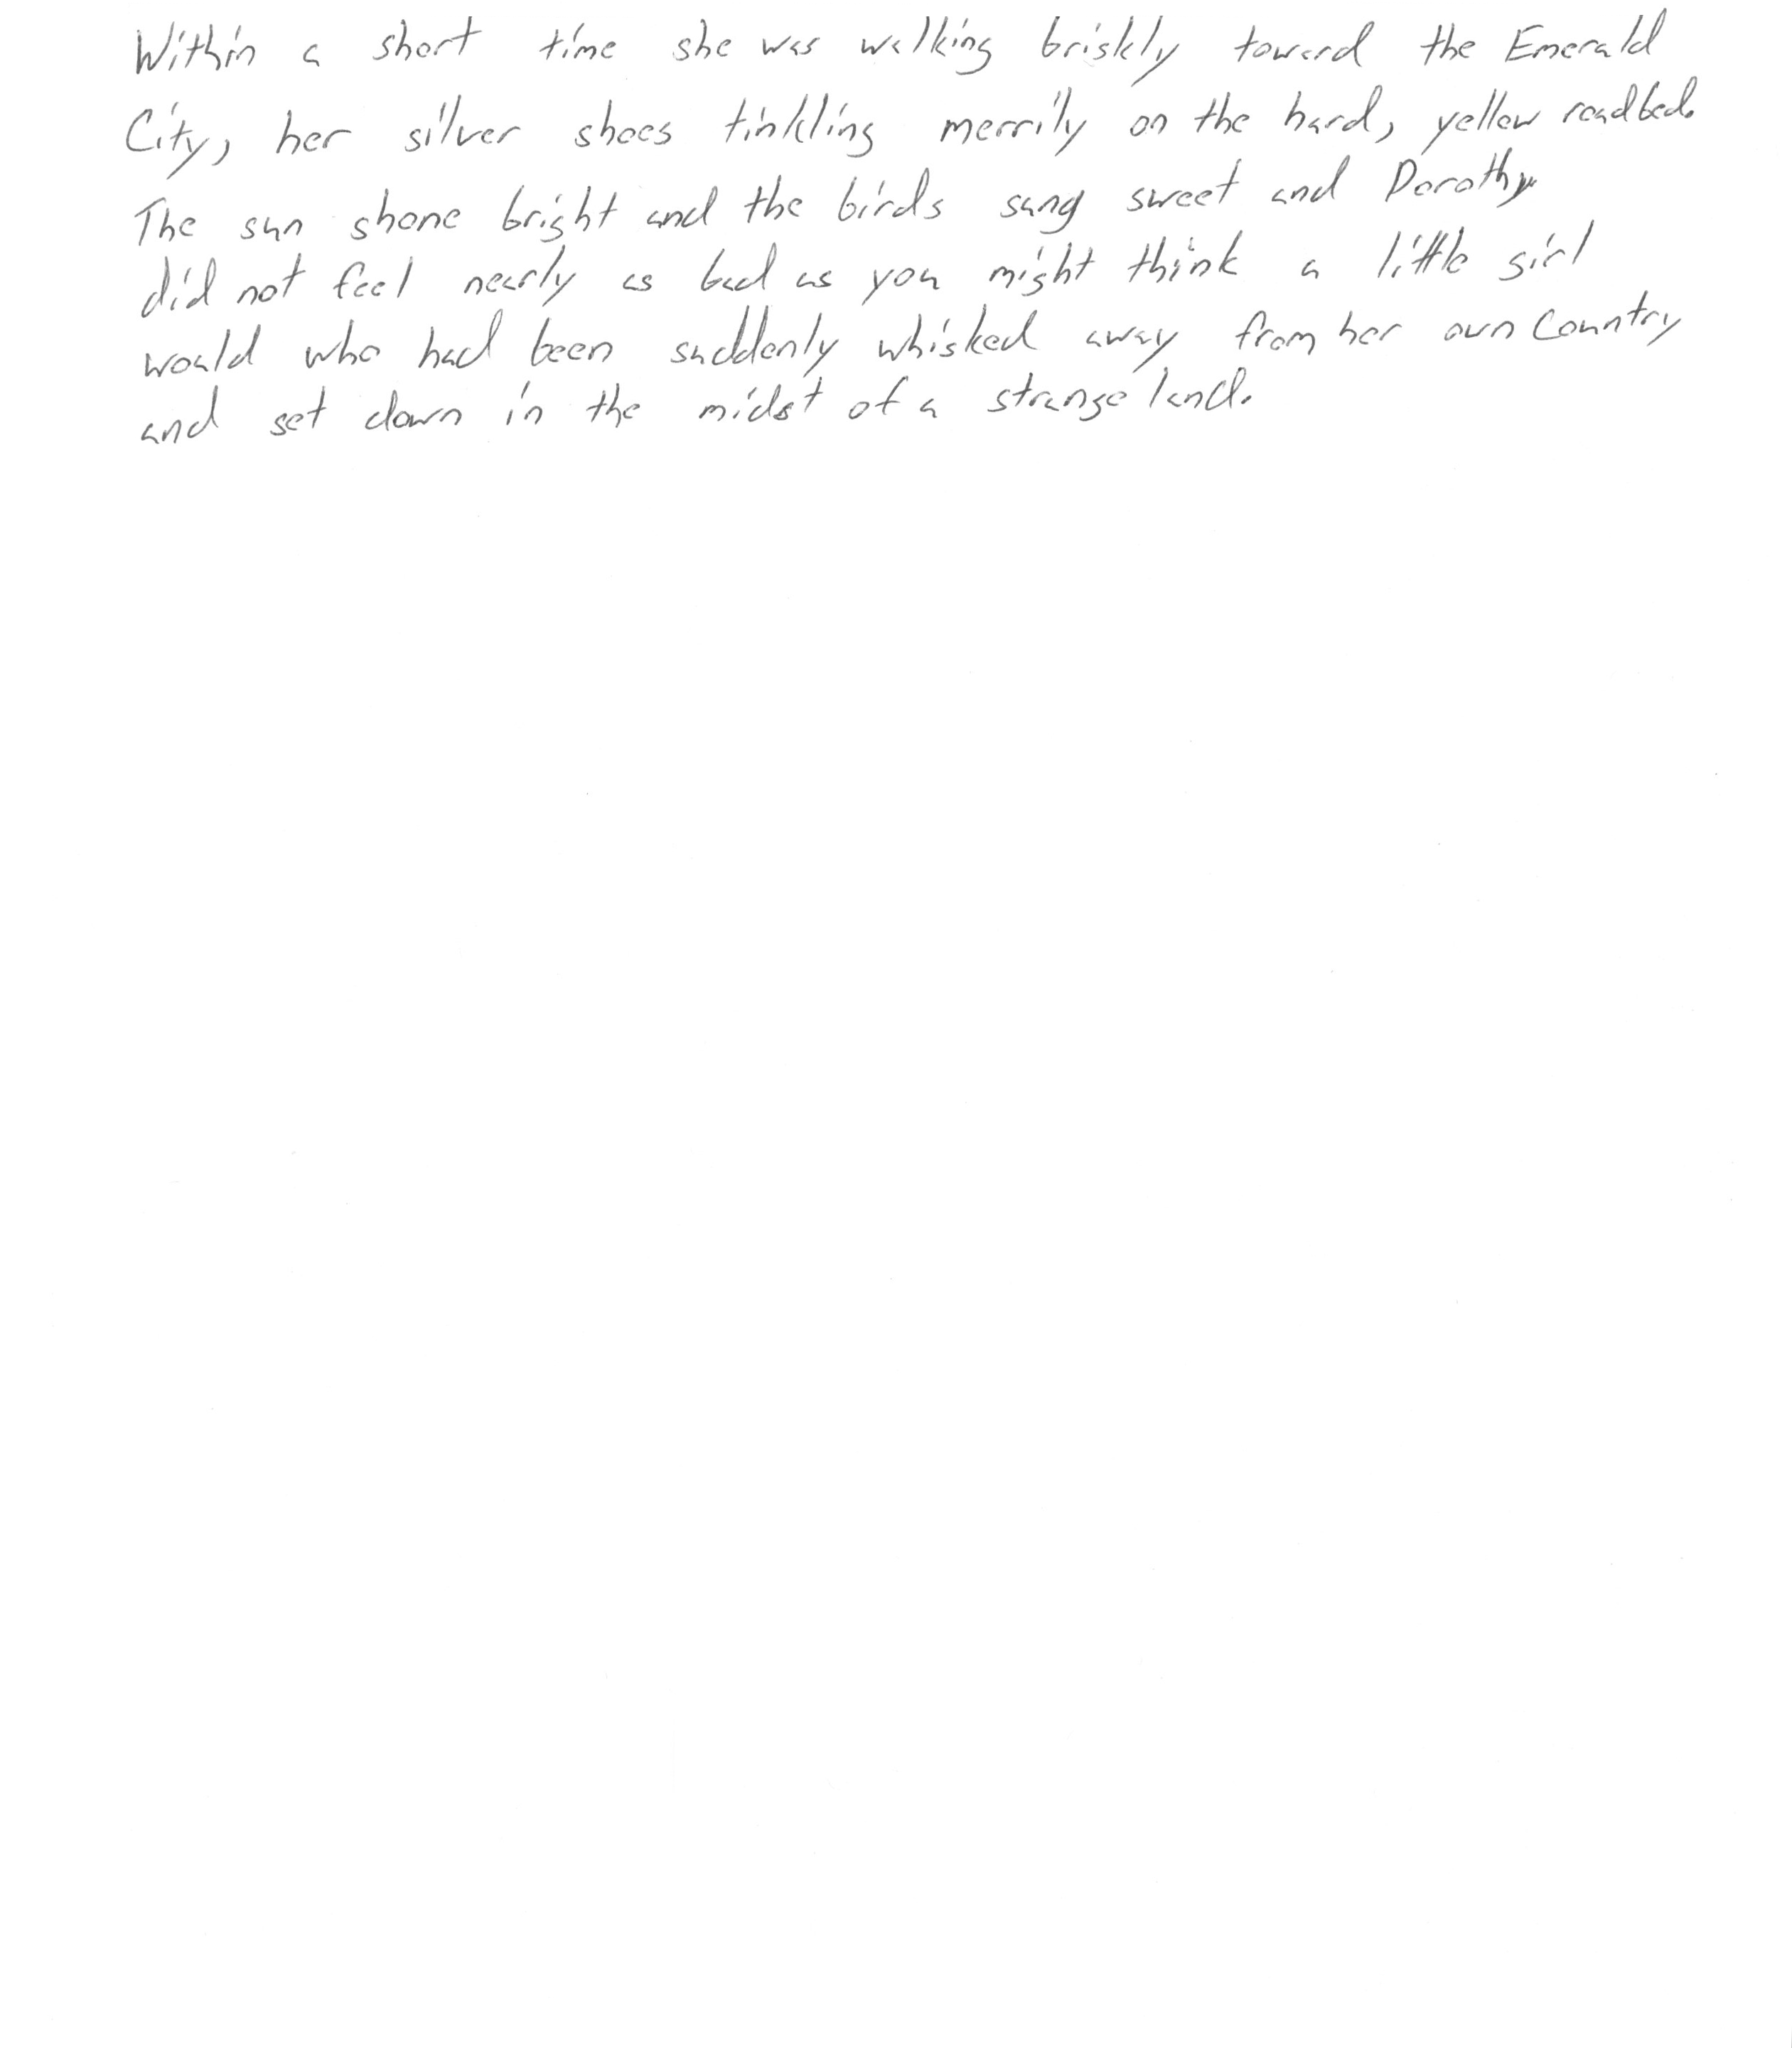 Within a short time she was walking briskly toward the Emerald
City, her silver shoes tinkling merrily on the hard, yellow roadbed.
The sun shone bright and the birds sang sweet and Dorothy
did not feel nearly as bad as you might think a little girl
would who had been suddenly whisked away from her own country
and set down in the midst of a strange land.